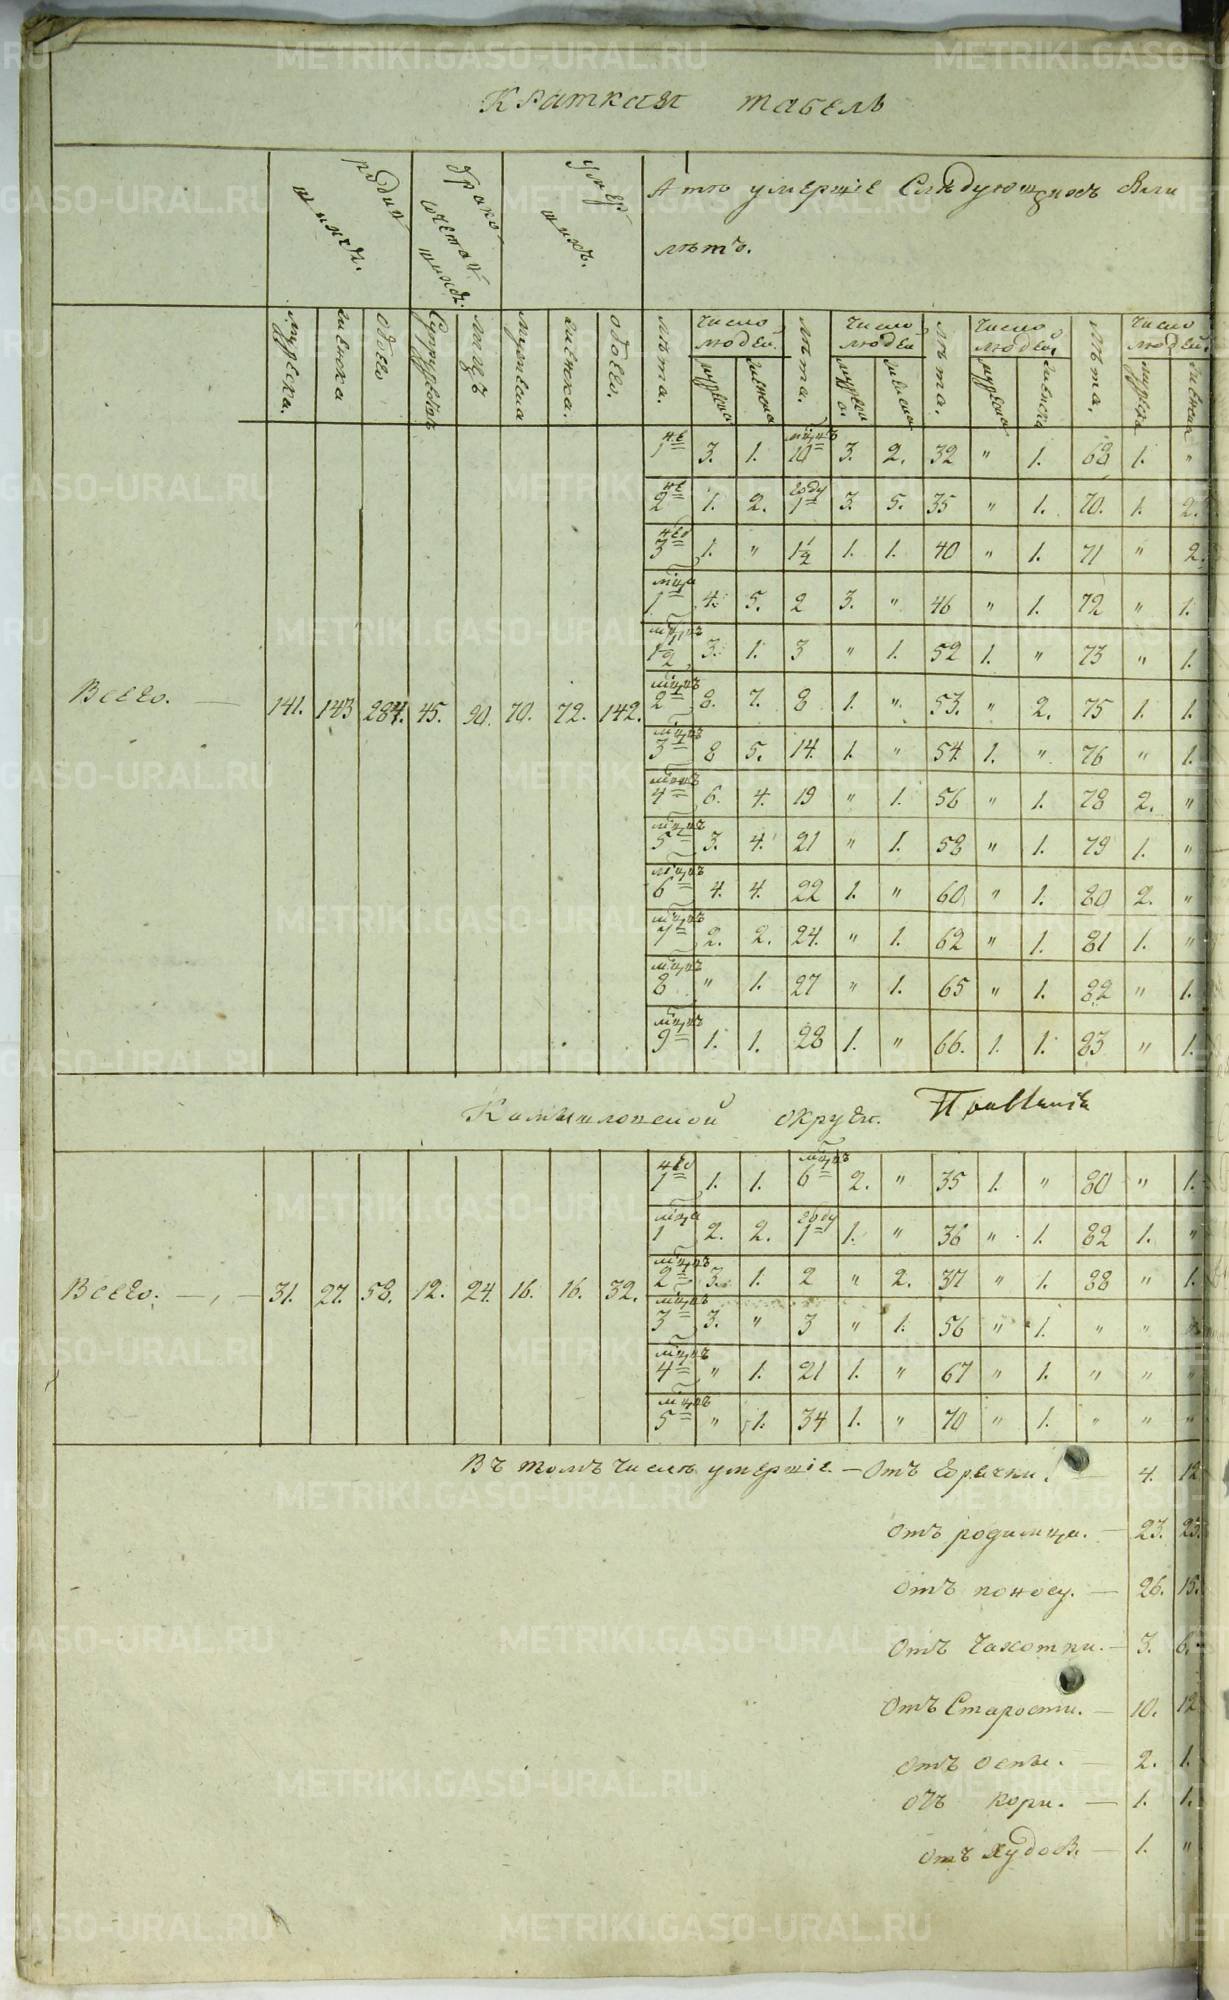 Краткая табель
родив
шихся.
брако
сочетав
шихся.
умер
шихъ.
А тѣ умершіе Слѣдующихъ были
лѣтъ.
мужеска. женска обоего Супружествъ лицъ мужеска женска. обоего. лѣта. число людей. мужеска женска лѣта. число людей мужеска женска лѣта. число людей. мужеска женска лѣта. число людей. мужеска женска
1 не 3. 1. 10 мцъ 3. 2. 32 " 1. 68 1. "
2 не 1. 2. 1 году 3. 5. 35 " 1. 70. 1. 2.
3 нед 1. " 1 1/2 1. 1. 40 " 1. 71 " 2.
1 мца 4. 5. 2 3. " 46 " 1. 72 " 1.
1 1/2 мцъ 3. 1. 3 " 1. 52 1. " 73 " 1.
Всего. — 141. 143 284. 45. 90. 70. 72. 142. 2 мцъ 8. 7. 8 1. " 53. " 2. 75 1. 1.
3 мцъ 8 5. 14. 1. " 54. 1. " 76 " 1.
4 мцъ 6. 4. 19 " 1. 56 " 1. 78 2. "
5 мцъ 3. 4. 21 " 1. 58 " 1. 79 1. "
6 мцъ 4. 4. 22 1. " 60 " 1. 80 2. "
7 мцъ 2. 2. 24. " 1. 62 " 1. 81 1. "
8 мцъ " 1. 27 " 1. 65 " 1. 82 " 1.
9 мцъ 1. 1. 28 1. " 66. 1. 1. 83 " 1.
Камышловской округи.
1 нед 1. 1. 6 мцъ 2. " 35 1. " 80 " 1.
1 мца 2. 2. 1 году 1. " 36 " 1. 82 1. "
Всего. — 31. 27. 58. 12. 24. 16. 16. 32. 2 мцъ 3. 1. 2 " 2. 37 " 1. 88 " 1.
3 мцъ 3. " 3 " 1. 56 " 1. " " "
4 мцъ " 1. 21 1. " 67 " 1. " " "
5 мцъ " 1. 34 1. " 70 " 1. " " "
Въ томъ числѣ умершіе. — Отъ горячки. — 4. 12
Отъ родимца. — 23. 25.
Отъ поносу. — 26. 15.
Отъ Чахотки. — 3. 6.
Отъ Старости. — 10. 12
Отъ оспы. — 2. 1.
Отъ кори. — 1. 1.
отъ — 1. "
METRIKI.GASO-URAL.RU